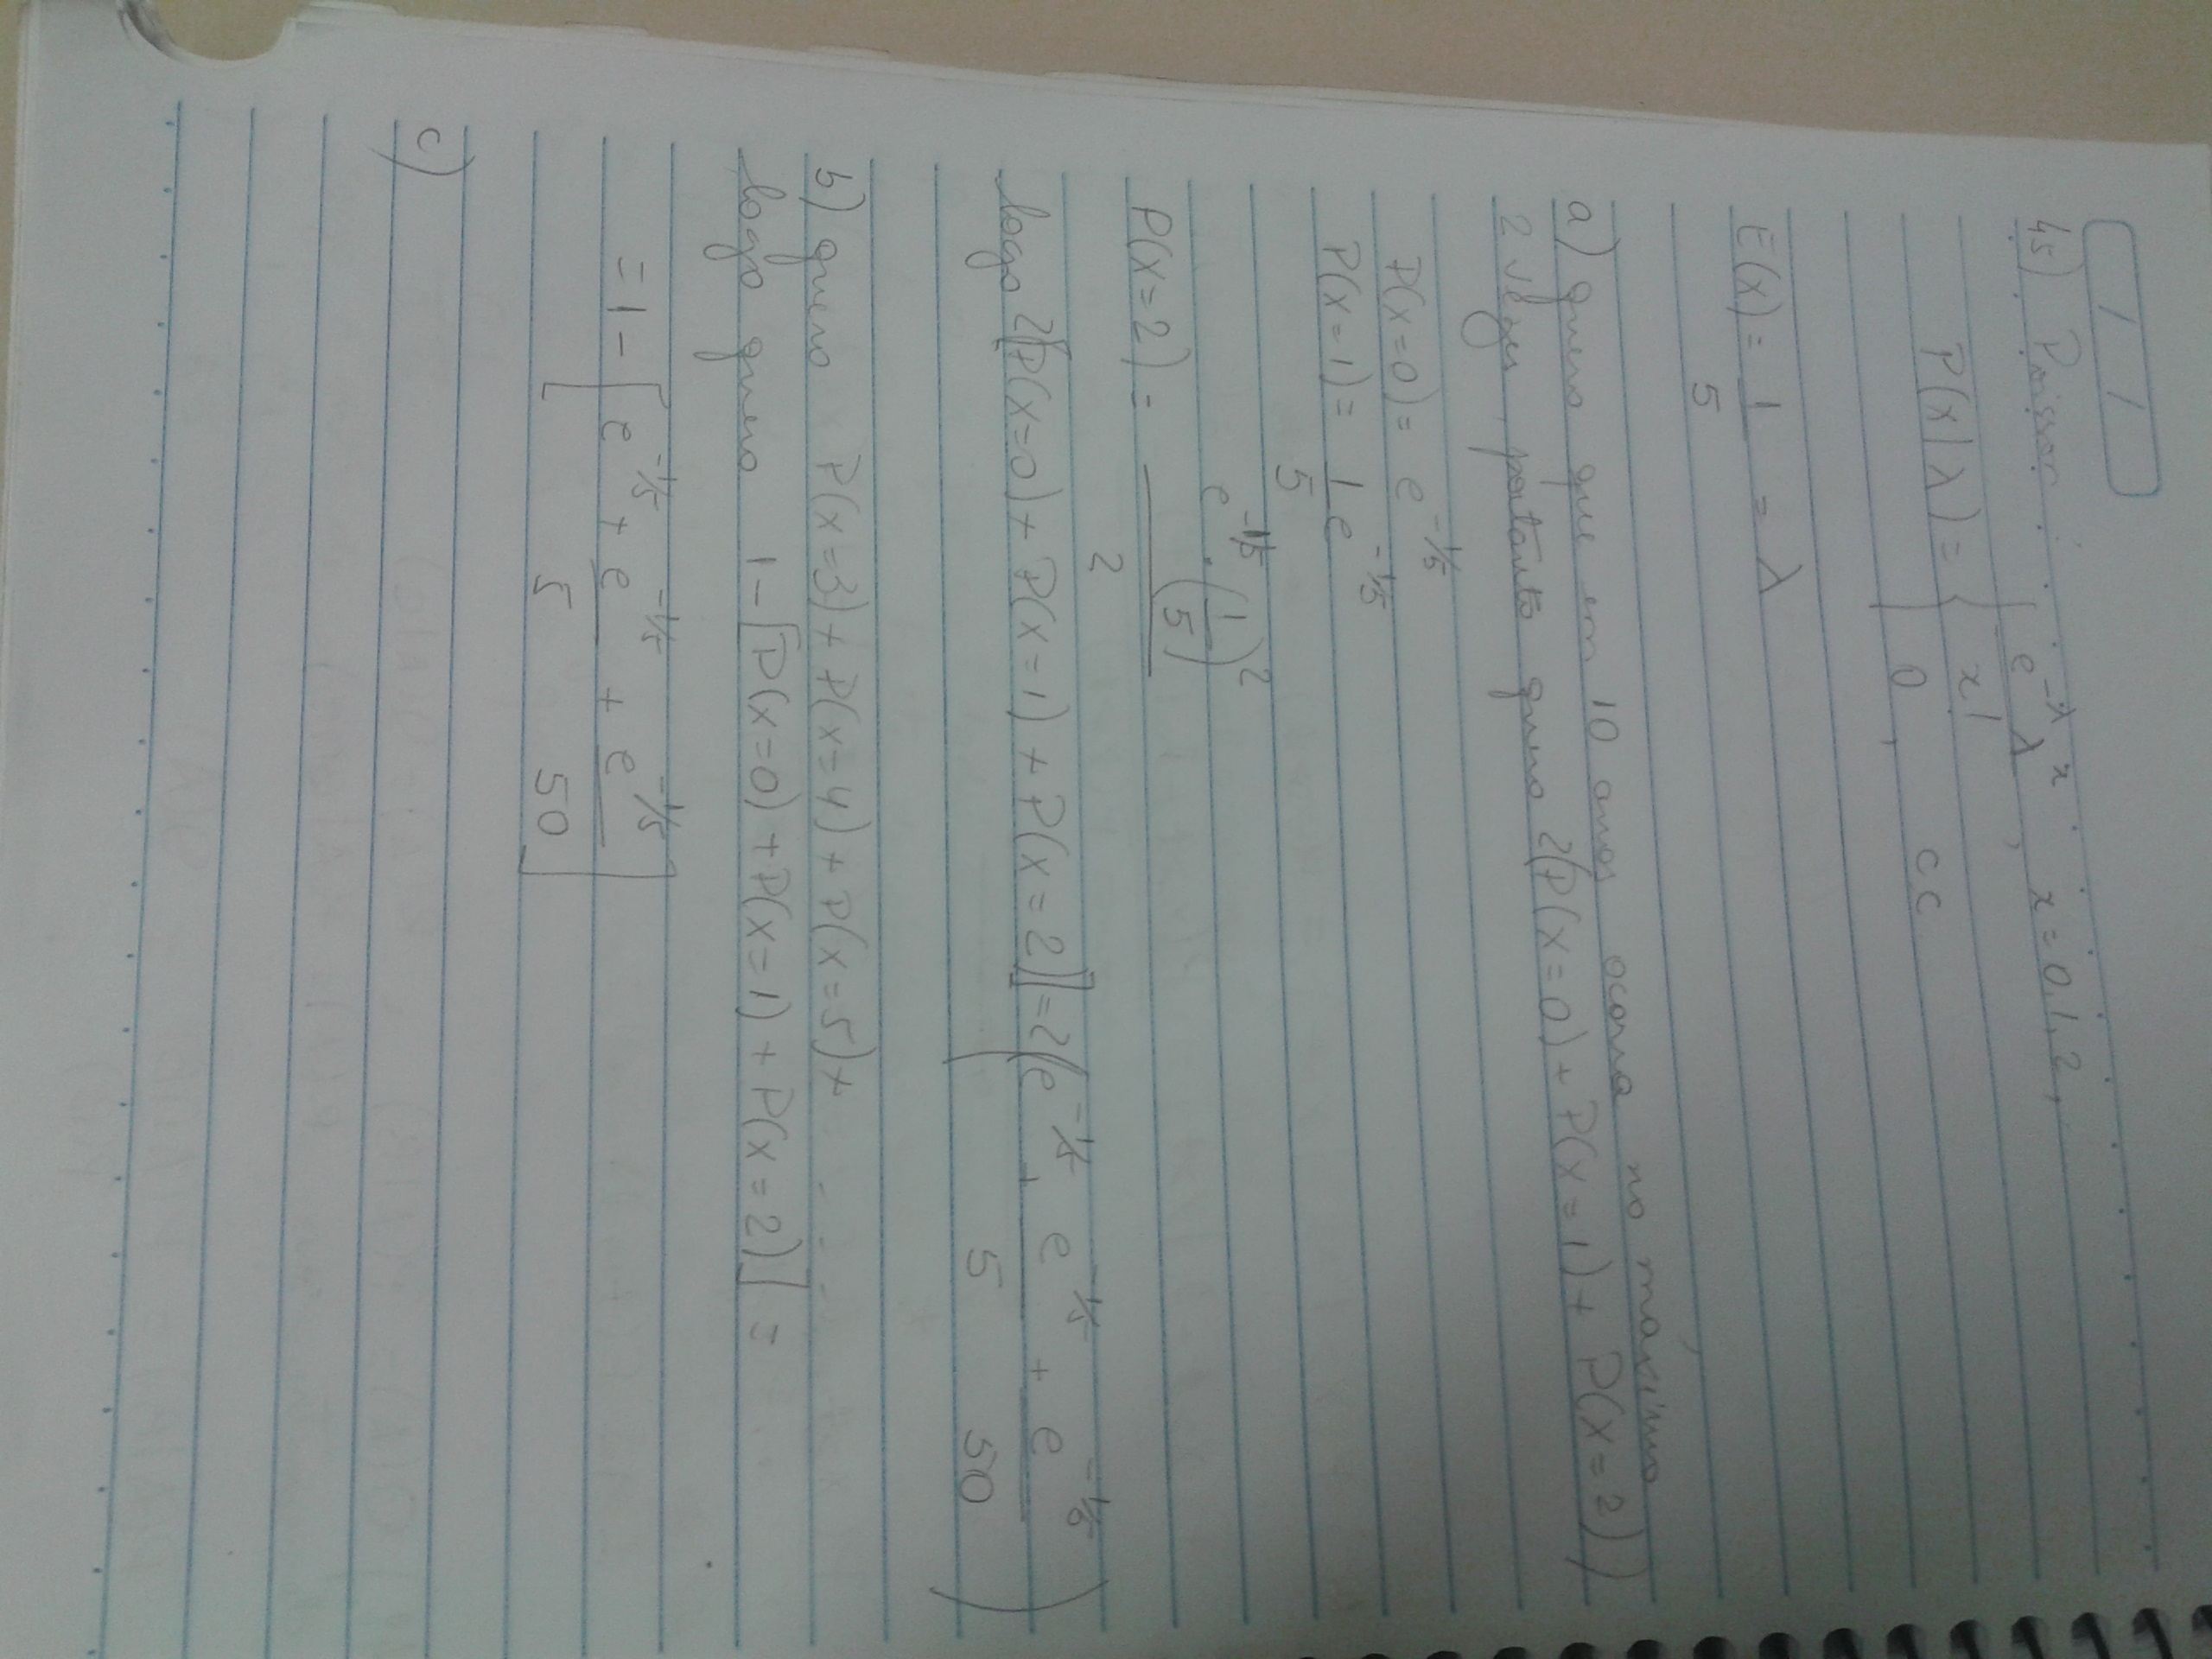 / /
45) Poisson
P(x|λ) = { e^-λ λ^x / x! , x = 0,1,2,
0 , cc
E(x) = 1/5 = λ
a) quero que em 10 anos ocorra no máximo
2 vezes, portanto quero 2(P(x=0) + P(x=1) + P(x=2))
P(x=0) = e^-1/5
P(x=1) = 1/5 e^-1/5
P(x=2) = e^-1/5 . (1/5)^2 / 2
logo 2[P(x=0) + P(x=1) + P(x=2)] = 2(e^-1/5 + e^-1/5 / 5 + e^-1/5 / 50)
b) quero P(x=3) + P(x=4) + P(x=5) + ....
logo quero 1 - [P(x=0) + P(x=1) + P(x=2)] =
= 1 - [e^-1/5 + e^-1/5 / 5 + e^-1/5 / 50]
c)